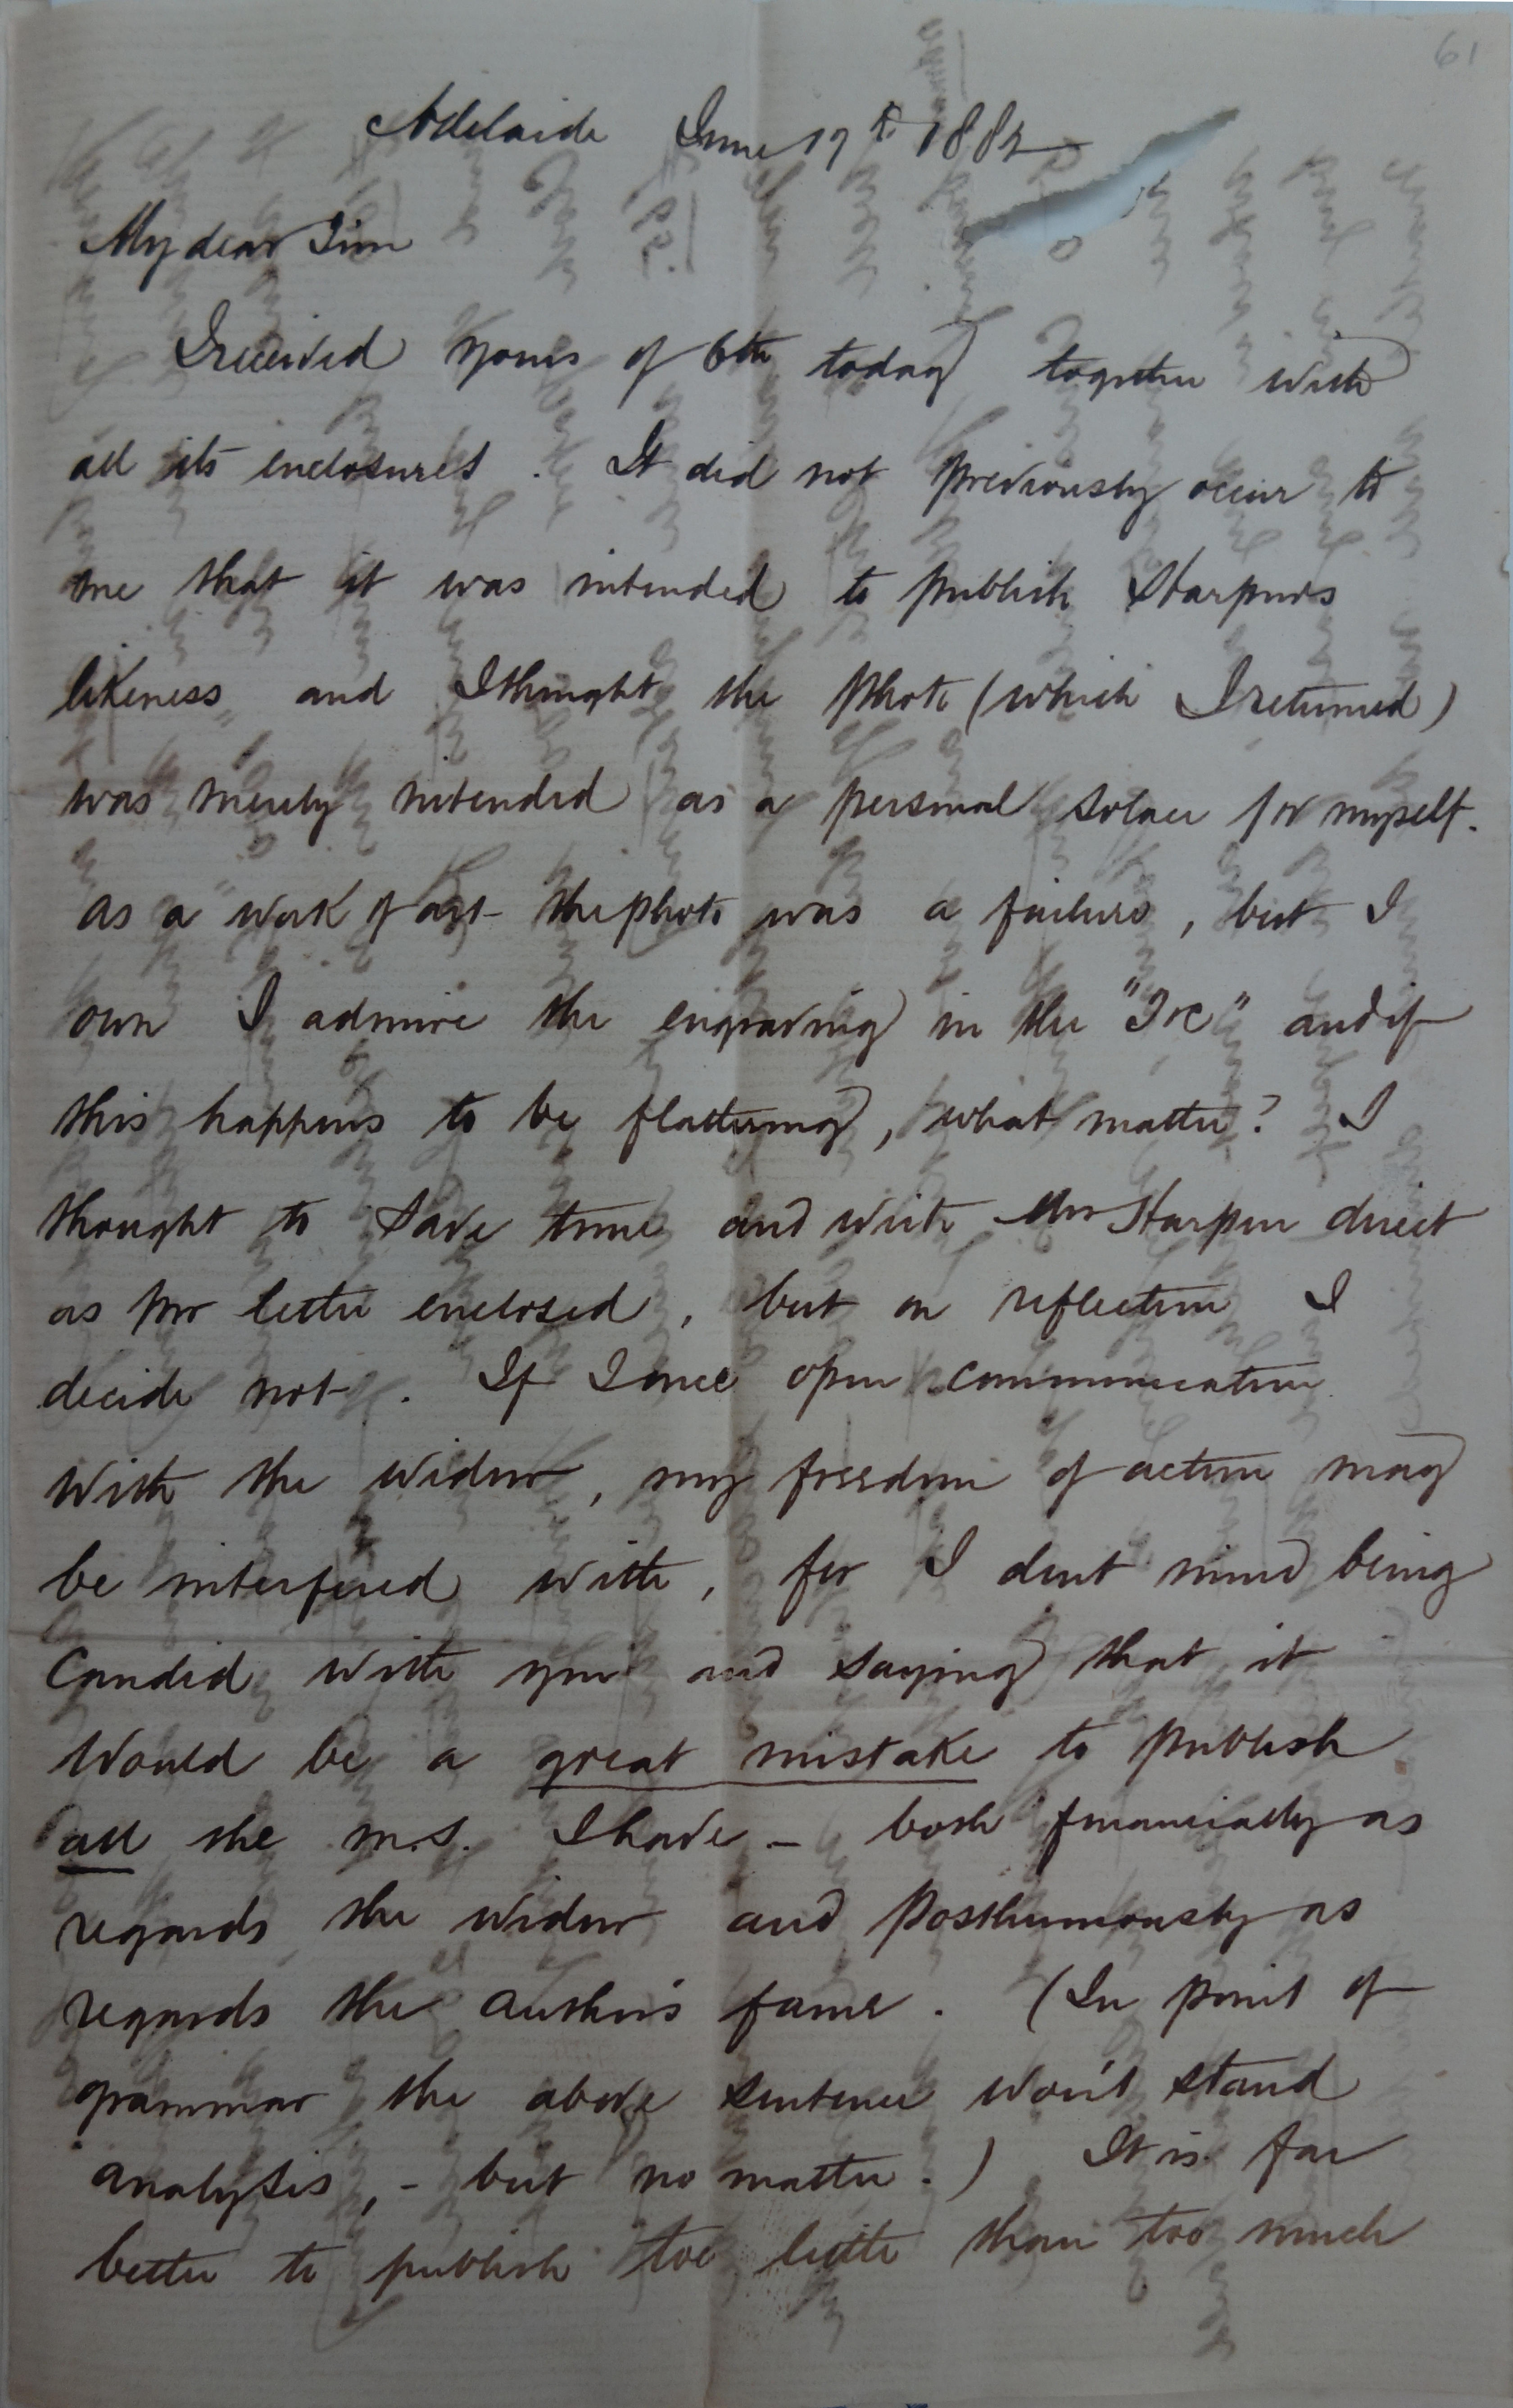 61
Adelaide June 17th 1882
My dear Sim
I received yours of 6th today together with
all its enclosures. It did not previously occur to
me that it was intended to publish Harpurs
likeness and I thought the photo (which I returned)
was merely intended as a personal solace for myself.
as a "work of art the photo was a failure, but I
own I admire the engraving in the " " and if
this happens to be flattering, what matter? I
thought to save time and write Mrs Harpur direct
as per letter enclosed, but on reflection I
decide not. If I once open communication
with the widow, my freedom of action may
be interfered with, for I dont mind being
candid with you and saying that it
would be a great mistake to publish
all the m.s. I have – both financially as
regards the widow and posthumously as
regards the author's fame. (In point of
grammar the above sentence won't stand
analysis, – but no matter.) It is far
better to publish too little than too much